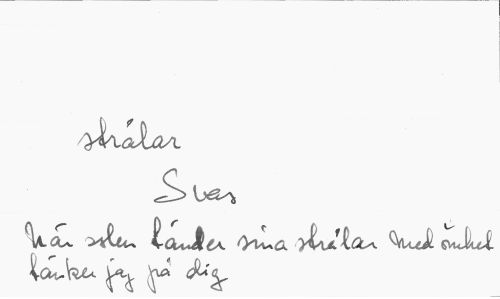 strålar
Svar
När solen tänder sina strålar med ömhet
tänker jag på dig